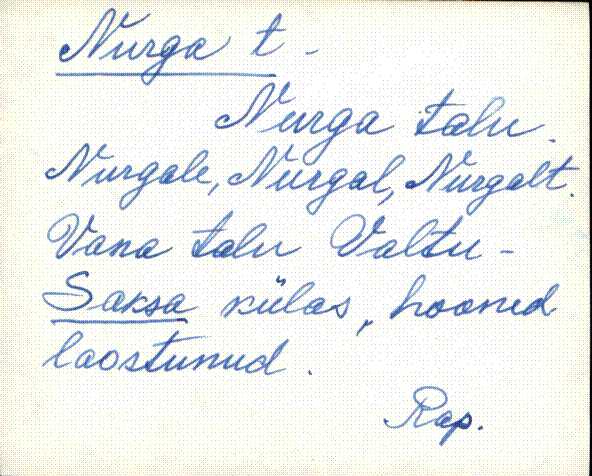 Nurga t -
Nurga talu.
Nurgale, Nurgal, Nurgalt.
Vana talu Valtu-
Saksa külas, hooned
laostunud.
Rap.